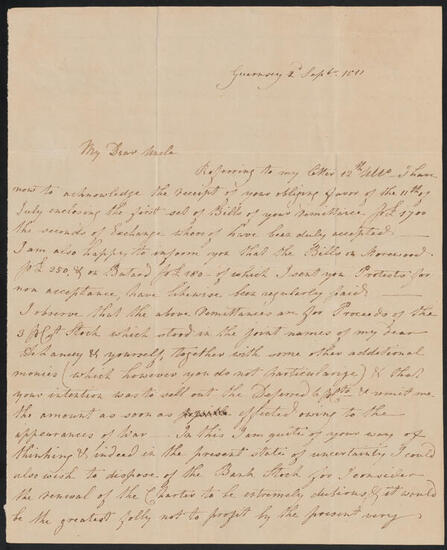 Guernsey 2d Sept. 1811
My Dear Uncle
Referring to my letter 12th Ulto. I have
now to acknowledge the receipt of your obliging favor of the 11th of
July enclosing the first set of Bills of your remittance for £ 1700
the seconds of Exchange whereof have been duly accepted
I am also happy to inform you that the Bills on
for £ 250, & on for £ 180 - of which I sent you Protests for
non acceptance, have likewise been regularly paid
I observe that the above remittances are for Proceeds of the
3 p Ct Stock which stood in the joint names of my dear
Delancey & yourself, together with some other additional
monies (which however you do not particularize) & that
your intention was to sell out the Deferred 6 p Cts & remit me
the amount as soon as effected owing to the
appearances of War - In this I am quite of your way of
thinking & indeed in the present state of uncertainty I could
also wish to dispose of the Bank Stock for I consider
the renewal of the Charter to be extremely dubious, & it would
be the greatest folly not to profit by the present very